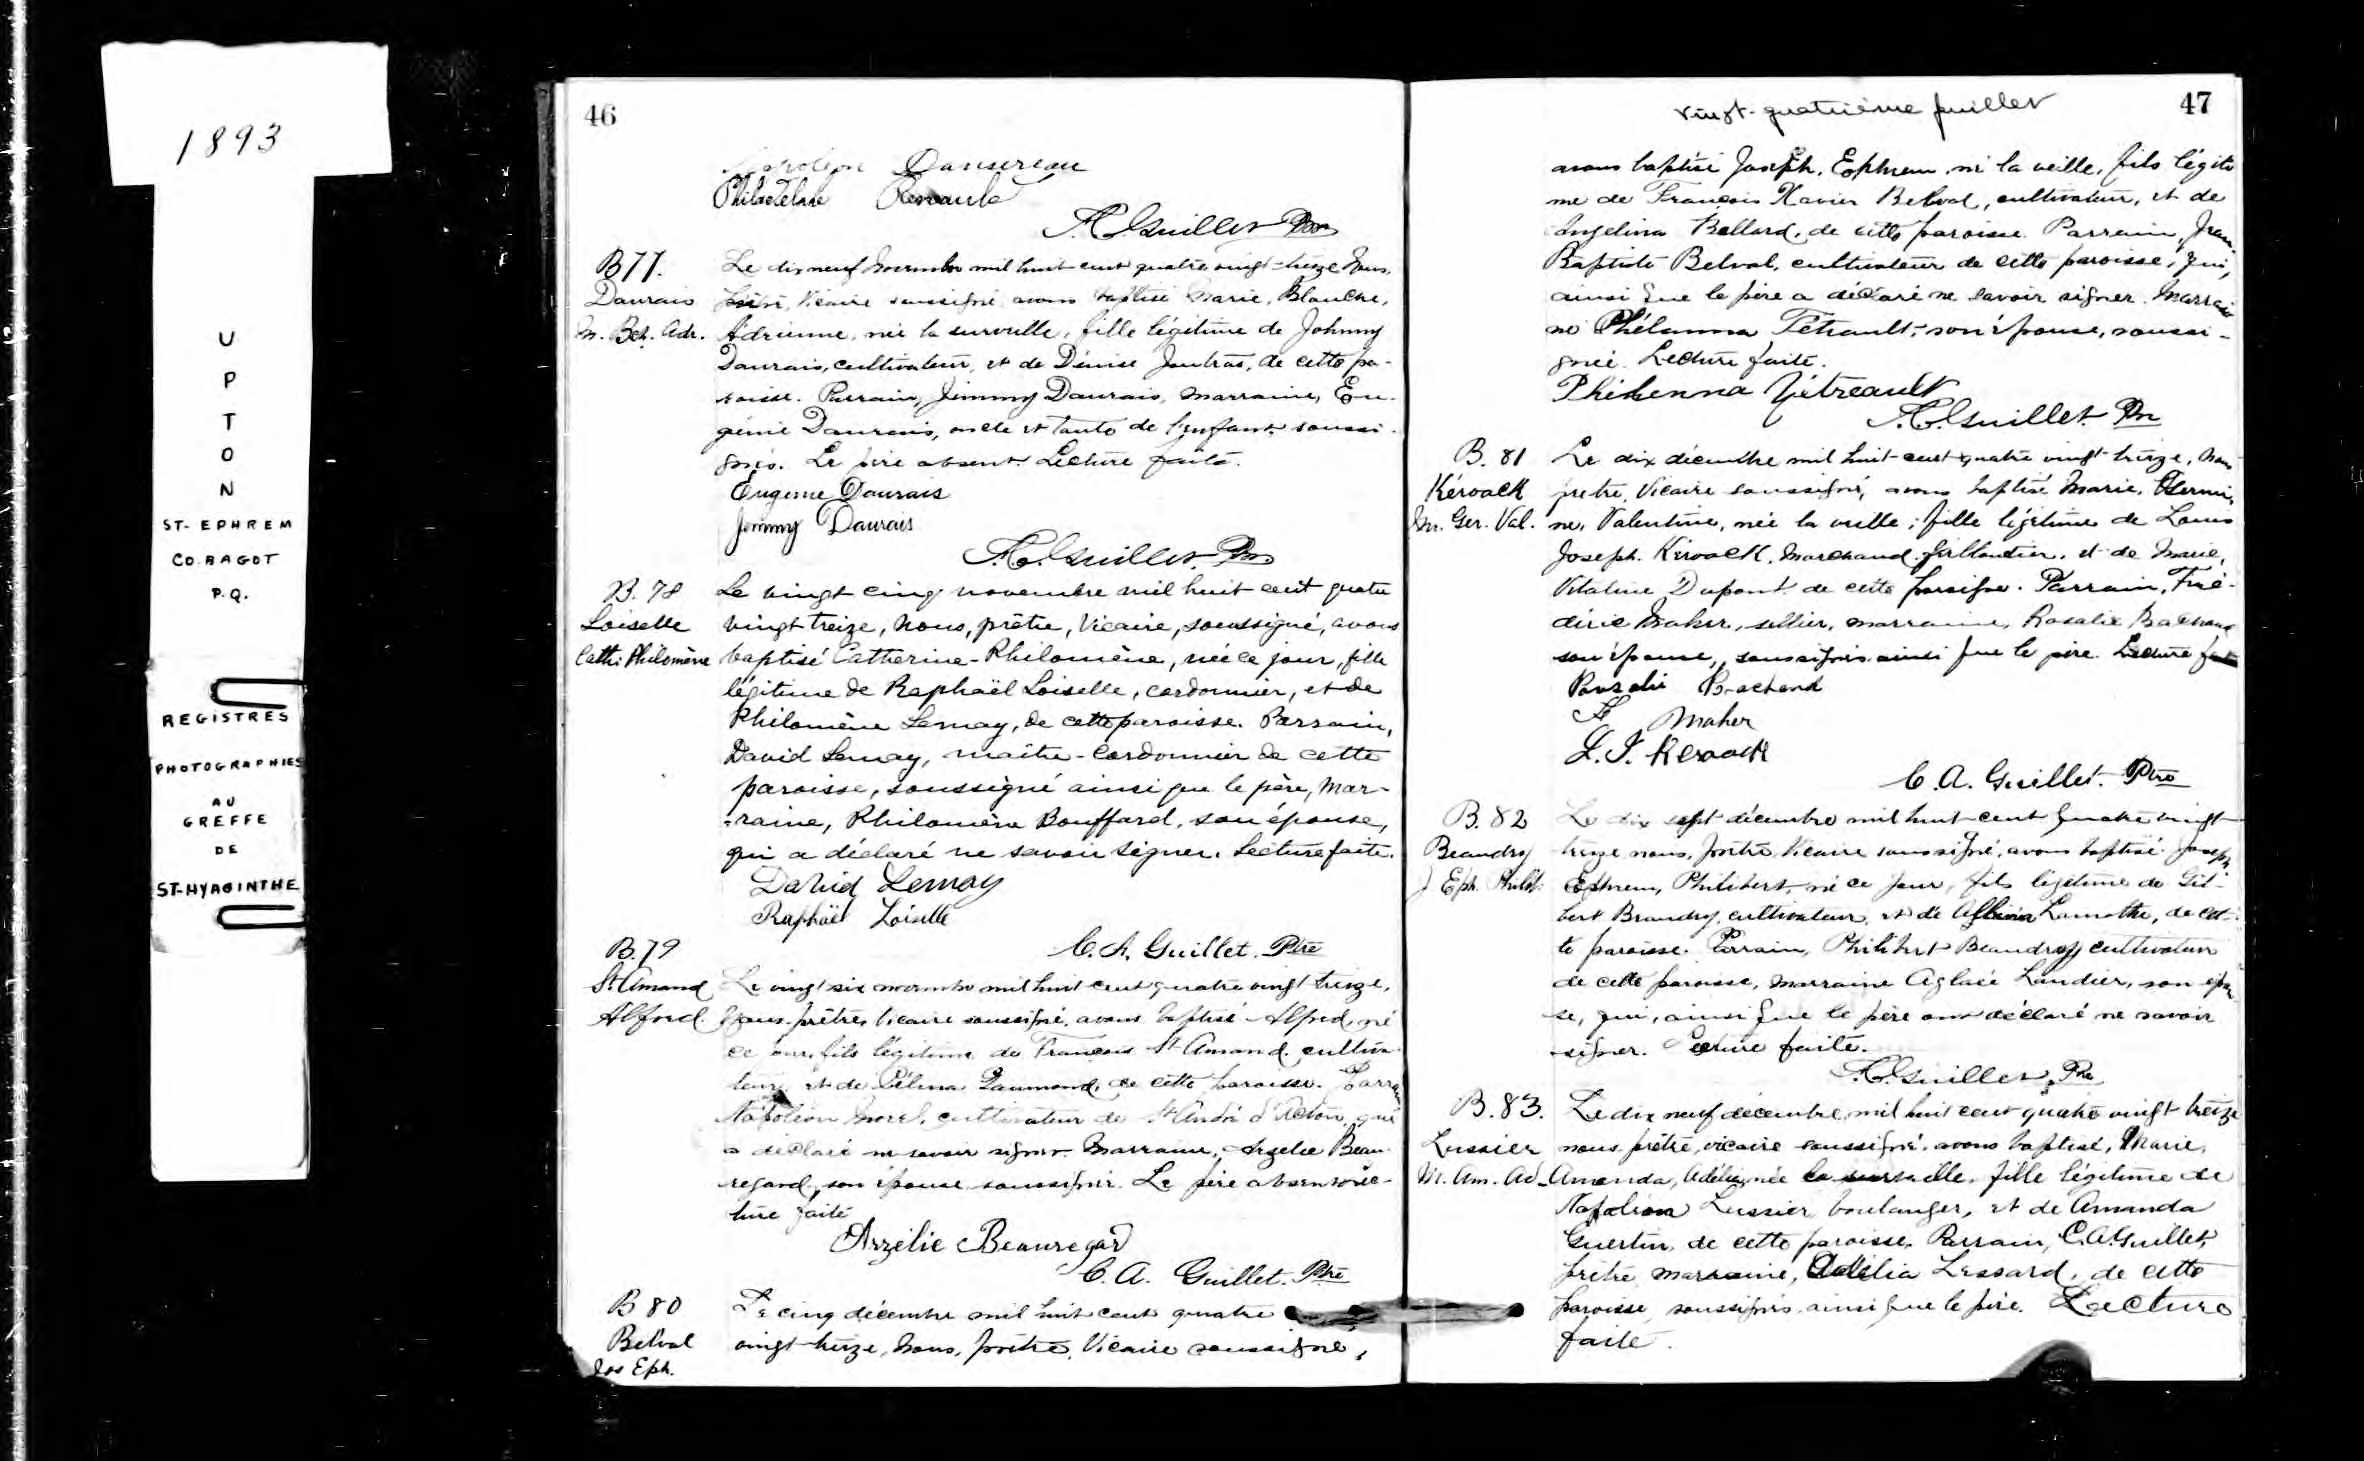 1893
U
P
T
O
N
ST-EPHREM
CO. BAGOT
P.Q.
REGISTRES
PHOTOGRAPHIES
AU
GREFFE
DE
ST-HYACINTHE
46
Napoléon Dansereau
C.A. Guillet Ptre
B 77.
Daurais
M. Bch. Adr.
Le dix neuf novembre mil huit cent quatre vingt-treize Nous,
Prêtre, Vicaire soussigné avons baptisé Marie, Blanche,
Adrienne, née la surveille, fille légitime de Johnny
Daurais, cultivateur, et de Dénise Jautras, de cette pa-
roisse. Parrain, Jimmy Daurais, marraine, Eu-
génie Daurais, oncle et tante de l'enfant soussi-
gnés. Le père absent. Lecture faite.
Eugenie Daurais
Jemmy Daurais
C.A. Guillet. Ptre
B. 78
Loiselle
Cath. Philomène
Le vingt cinq novembre mil huit cent quatre
vingt treize, Nous, prêtre, Vicaire, soussigné, avons
baptisé Catherine-Philomène, née ce jour, fille
légitime de Raphaël Loiselle, cordonnier, et de
Philomène Lemay, de cette paroisse. Parrain,
David Lemay, maître-Cordonnier de cette
paroisse, soussigné ainsi que le père, Mar-
raine, Philomène Bouffard, son épouse,
qui a déclaré ne savoir signer. Lecture faite.
David Lemay
Raphaël Loiselle
C. A. Guillet. Ptre
B. 79
St. Amand
Alfred.
Le vingt six novembre mil huit cent quatre vingt treize,
Nous, prêtre, Vicaire soussigné, avons baptisé Alfred, né
ce jour, fils légitime de Francois St Amand, cultiva-
teur, et de Célina de cette paroisse. Parrain
Napoléon Morel, cultivateur de St André d'Acton, qui
a déclaré ne savoir signer. Marraine, Beau-
regard, son épouse soussignée. Le père absent. Lec-
ture faite
Arzelie Beauregard
C. A. Guillet. Ptre
B 80
Belval
Jos Eph.
Le cinq décembre mil huit cent quatre
vingt-treize, Nous, prêtre, Vicaire soussigné,
vingt-quatrième feuillet
47
avons baptisé Joseph, Ephrem, né la veille, fils légiti
me de François Xavier Belval, cultivateur, et de
Angelina Ballard, de cette paroisse. Parrain, Jean
Baptiste Belval, cultivateur de cette paroisse, qui,
ainsi que le père a déclaré ne savoir signer. Marrai
ne Phélanna Tétrault, son épouse, soussi-
gnée. Lecture faite.
Philenna Tétreault
C.A. Guillet. Ptre
B. 81
Kéroack
M. Ger. Val.
Le dix décembre mil huit cent quatre vingt-treize, Nous
prêtre, Vicaire soussigné, avons baptisé Marie, Germi
ne, Valentine, née la veille, fille légitime de Louis
Joseph. Kéroack, Marchand ferblantier, et de Marie,
Vitaline Dupont de cette paroisse. Parrain, Fré-
déric Maher, sellier, marraine, Rosalie Bachand
son épouse, soussignés ainsi que le père. Lecture faite
Rosalie Bachand
F Maher
L. J. Keroack
C. A. Guillet. Ptre
B. 82
Beaudry
J Eph. Philib.
Le dix sept décembre mil huit cent quatre vingt
treize nous, prêtre, Vicaire soussigné, avons baptisé Joseph
Ephrem, Philibert, né ce jour, fils légitime de Gil-
bert Beaudry, cultivateur, et de Lamothe, de cet-
te paroisse. Parrain, Philibert Beaudry, cultivateur
de cette paroisse, marraine Aglaée Landier, son épou
se, qui, ainsi que le père ont déclaré ne savoir
signer. Lecture faite.
C.A. Guillet, Ptre
B. 83.
Lussier
M. Am. Ad.
Le dix neuf décembre mil huit cent quatre vingt treize
nous prêtre, vicaire soussigné, avons baptisé, Marie,
Amanda, Adélia, née la surveille, fille légitime de
Napoléon Lussier, boulanger, et de Amanda
Guertin, de cette paroisse. Parrain, C.A. Guillet,
prêtre, marraine, Adélia Lessard, de cette
paroisse, soussignés ainsi que le père. Lecture
faite.